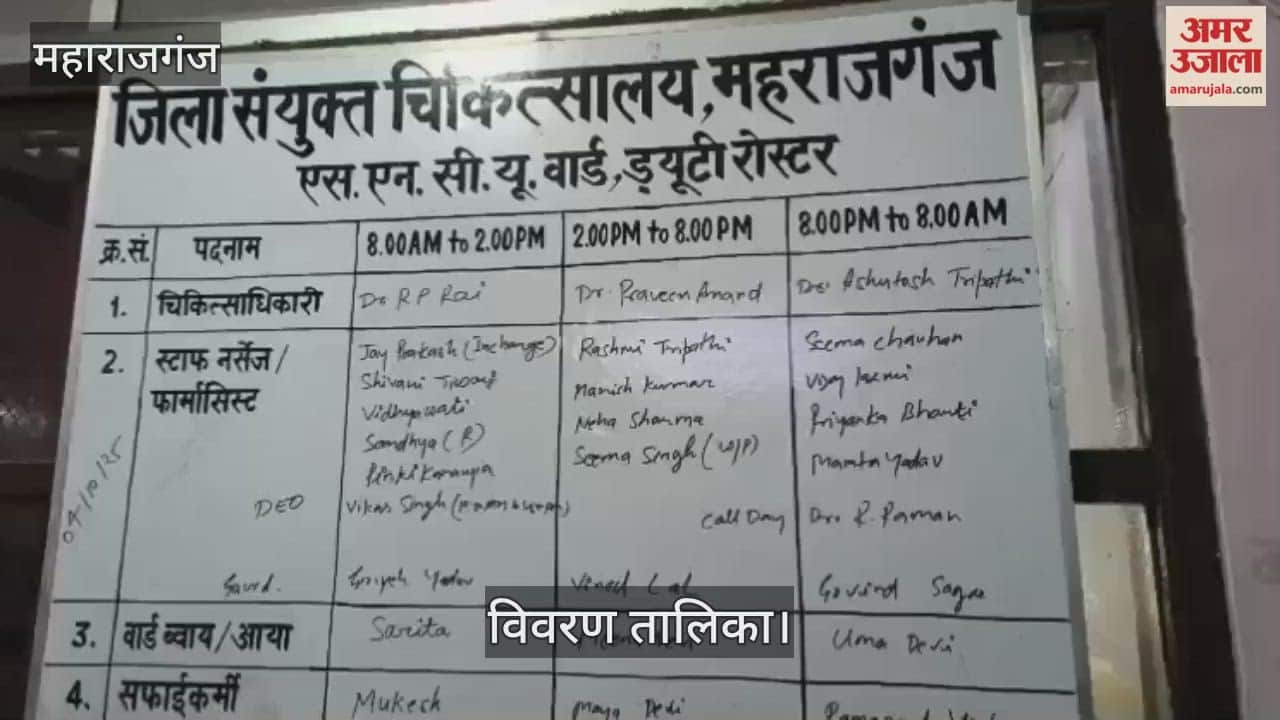 महाराजगंज
अमर
उजाला
amarujala.com
जिला संयुक्त चिकित्सालय, महराजगंज
एस. एन. सी. यू. वार्ड, ड्यूटी रोस्टर
क्र.सं. पदनाम 8.00AM to 2.00PM 2.00PM to 8.00PM 8.00PM to 8.00AM
1. चिकित्साधिकारी Dr R P Rai Dr. Praveen Anand Dr. Ashutosh Tripathi
2. स्टाफ नर्सेज/ Jay Prakash (Incharge) Rashmi Tripathi Seema Chauhan
फार्मासिस्ट Shivani Manish Kumar Vijay Laxmi
Vidhyawati Neha Sharma Priyanka Bharti
Sandhya (R) Seema Singh (W/P) Mamta Yadav
Pinki
04/10/25
DEO Vikas Singh Call Day Dr. R. Raman
Gaurd. Yadav Vinod Lal Govind
3. वार्ड ब्वाय/आया Sarita Uma Devi
विवरण तालिका।
4. सफाईकर्मी Mukesh Maya Devi